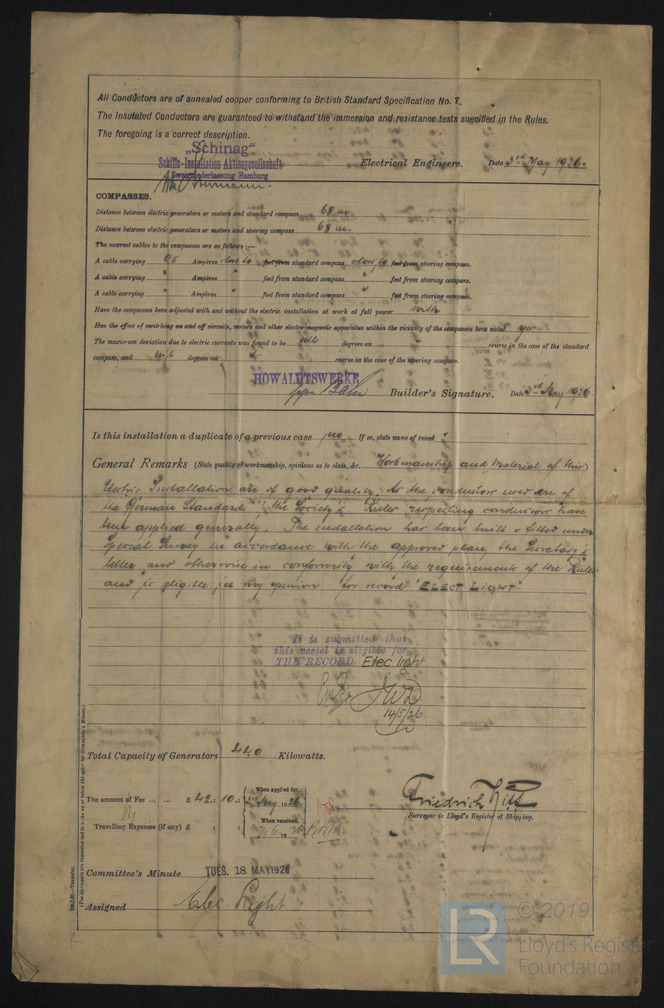 All Conductors are of annealed copper conforming to British Standard Specification No. 7.
The Insulated Conductors are guaranteed to withstand the immersion and resistance tests specified in the Rules.
The foregoing is a correct description.
„Schinag“
Schiffs-Installation Aktiengesellschaft
Zweigniederlassung Hamburg
Electrical Engineers. Date 3rd May 1926.
COMPASSES.
Distance between electric generators or motors and standard compass 68 m.
Distance between electric generators or motors and steering compass 68 m.
The nearest cables to the compasses are as follows :—
A cable carrying 0.5 Ampères close to feet from standard compass close to feet from steering compass.
A cable carrying " Ampères " feet from standard compass " feet from steering compass.
A cable carrying " Ampères " feet from standard compass " feet from steering compass.
Have the compasses been adjusted with and without the electric installation at work at full power with
Has the effect of switching on and off circuits, motors and other electro-magnetic apparatus within the vicinity of the compasses been noted yes
The maximum deviation due to electric currents was found to be nil degrees on " course in the case of the standard
compass, and nil degrees on " course in the case of the steering compass.
HOWALDTSWERKE
Builder's Signature. Date 3rd May 1926
Is this installation a duplicate of a previous case no If so, state name of vessel "
General Remarks (State quality of workmanship, opinions as to class, &c. Workmanship and material of this
Electric Installation are of good quality. As the conductors used are of
the German Standards the Society's Rules respecting conductors have
been applied generally. The installation has been built & fitted under
Special Survey in accordance with the approved plans, the Secretary's
letter and otherwise in conformity with the requirements of the Rules
and is eligible in my opinion for record "ELECT LIGHT".
It is submitted that
this vessel is eligible for
THE RECORD. Elec light
JWD
14/5/26
Total Capacity of Generators 440 Kilowatts.
The amount of Fee ... ... £ 42 : 10 : When applied for, May 1926
Travelling Expenses (if any) £ : : When received, 7.6.19
Friedrich
Surveyor to Lloyd's Register of Shipping.
Committee's Minute TUES. 18 MAY 1926
Assigned Elec Light
LR © 2019
Lloyd's Register
Foundation